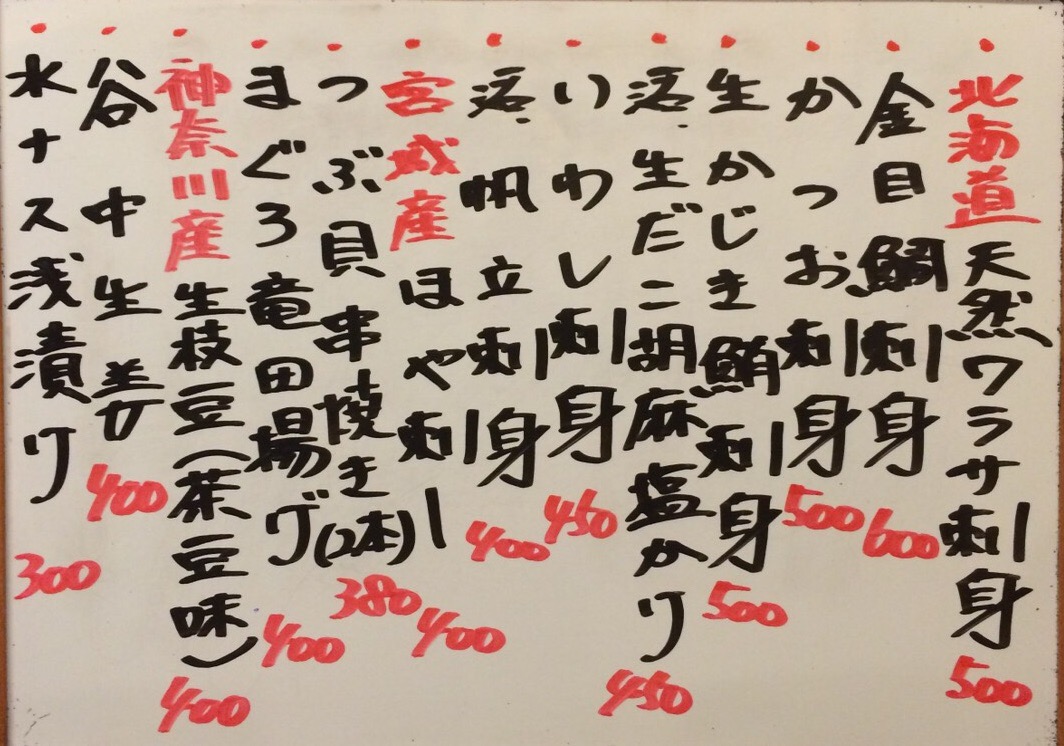 ・北海道天然ワラサ刺身 500
・金目鯛刺身 600
・かつお刺身 500
・生かじき鮪刺身 500
・活生だこ胡麻塩かり 450
・いわし刺身 450
・活帆立刺身 400
・宮城産ほや刺し 400
・つぶ貝串焼き(2本) 380
・まぐろ竜田揚げ 400
・神奈川産生枝豆(茶豆味) 400
・谷中生姜 400
・水ナス浅漬り 300